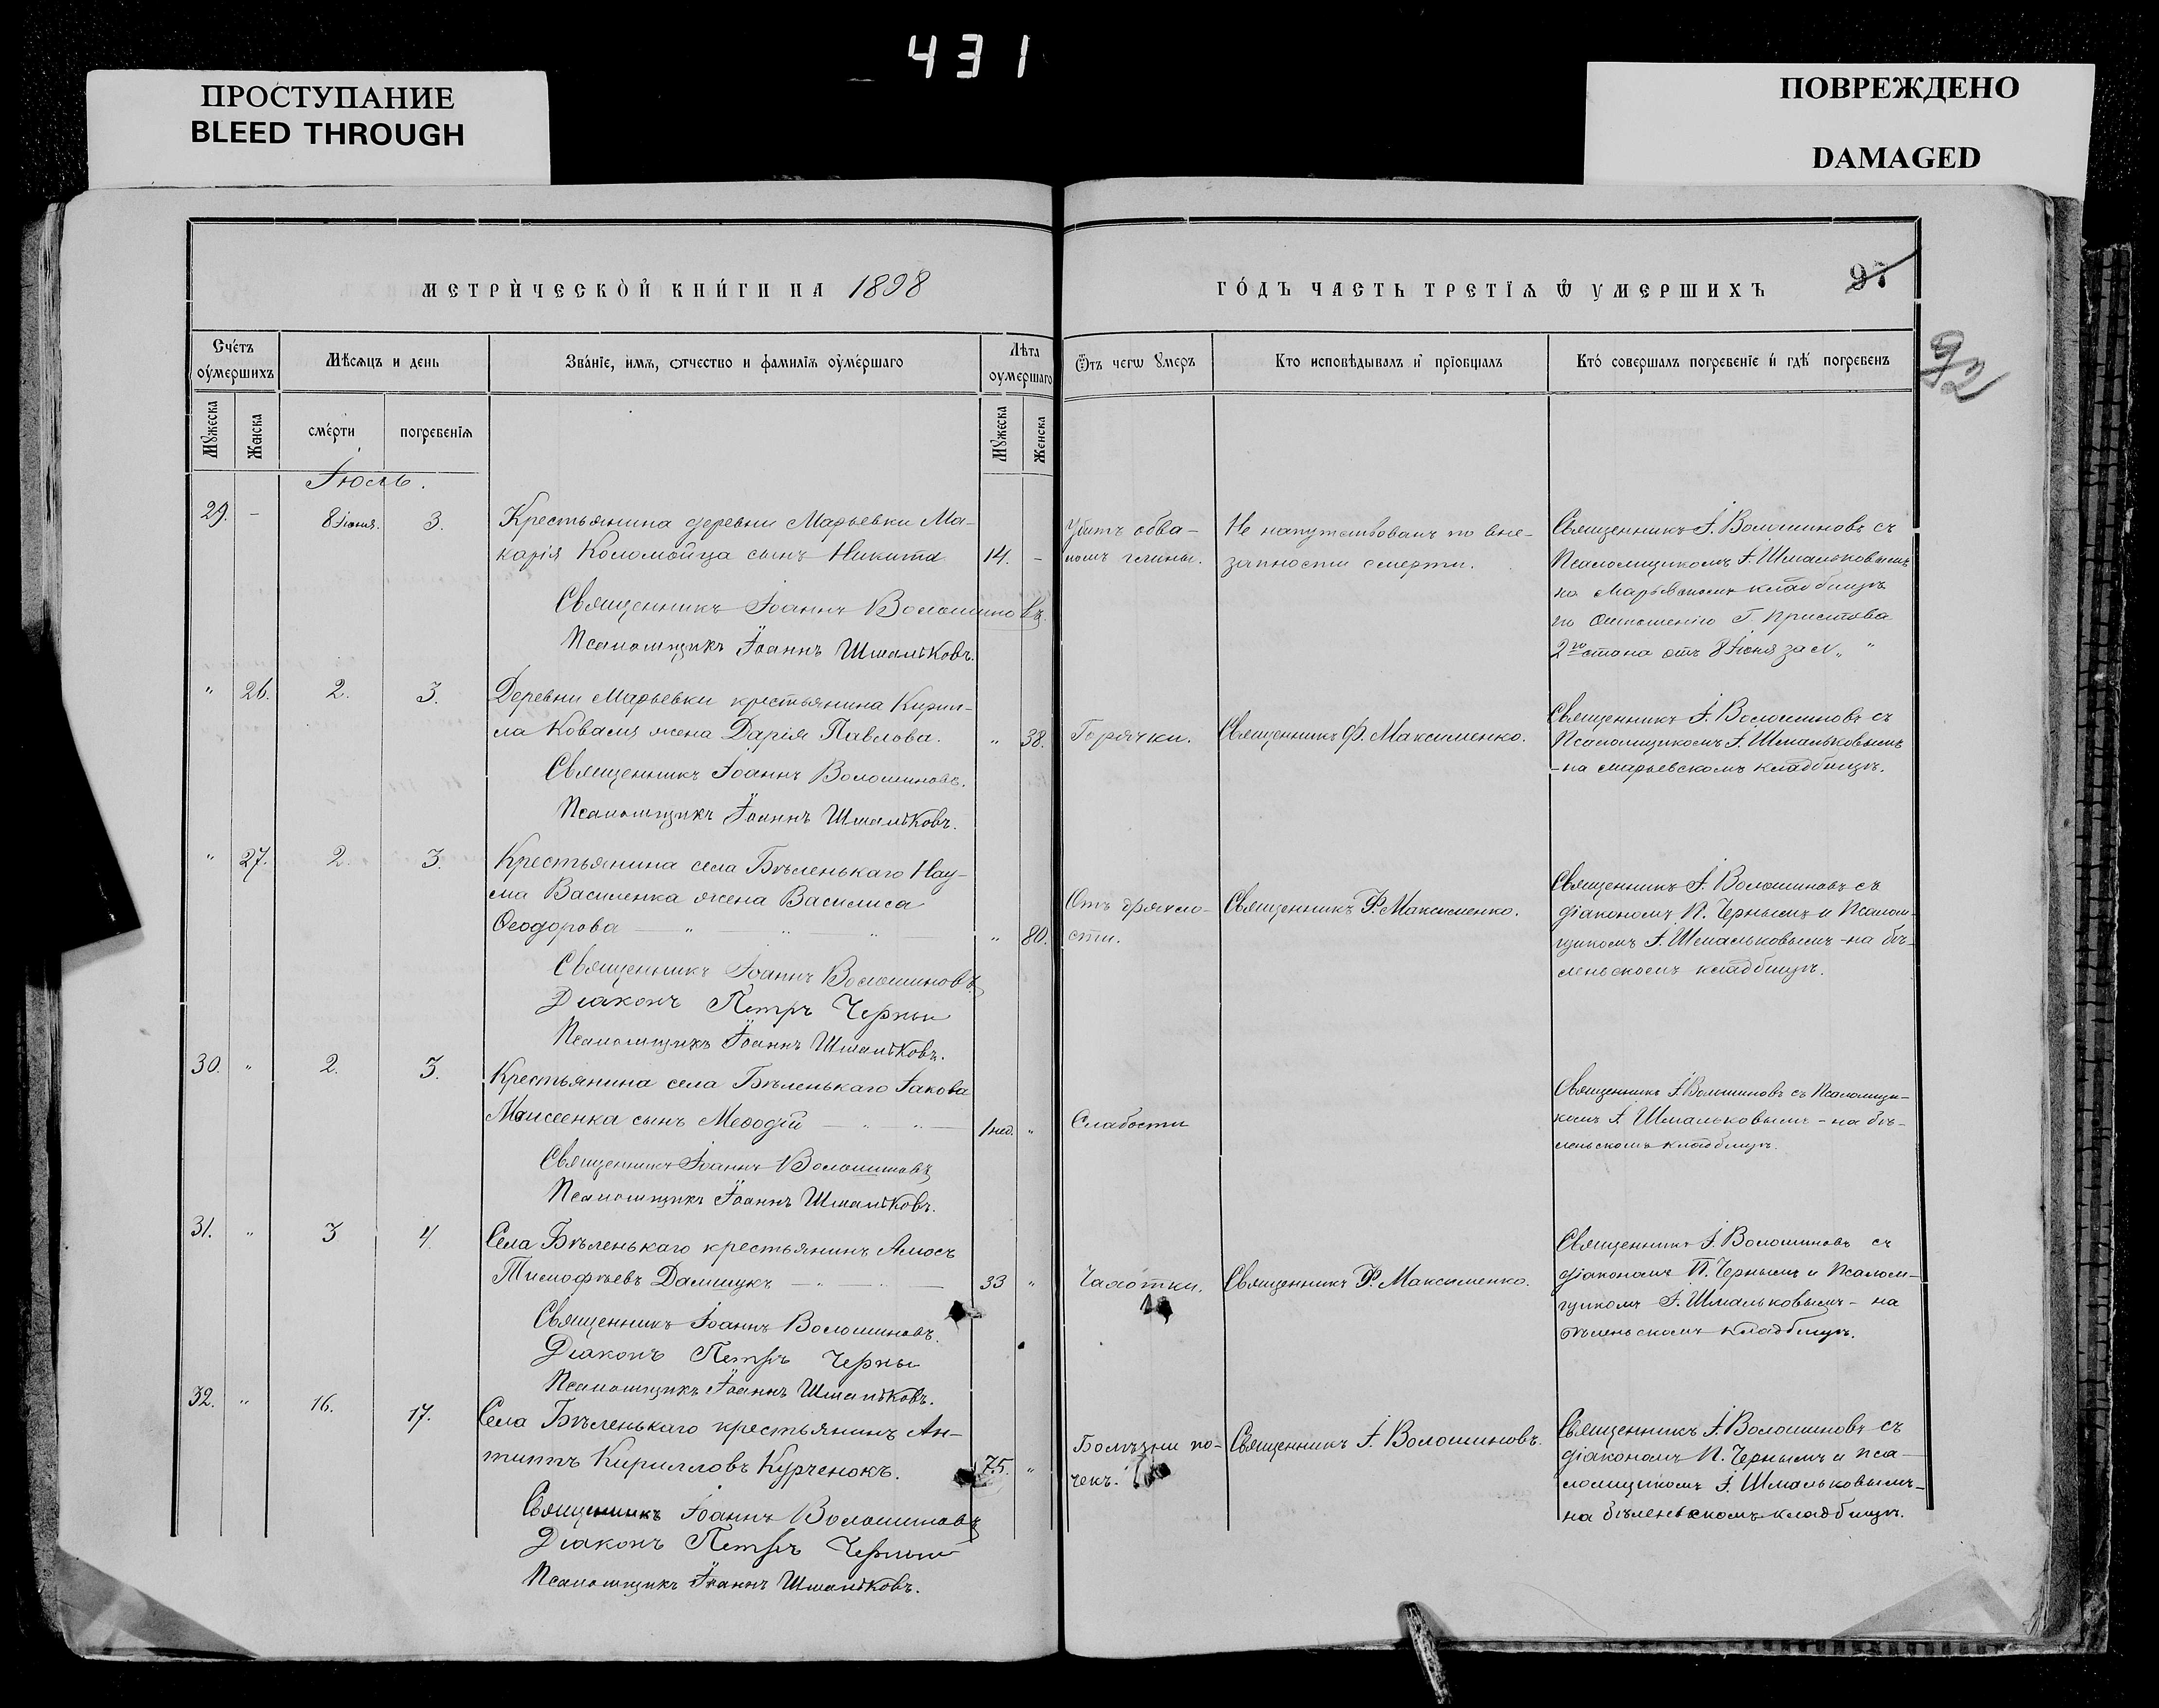 431
ПРОСТУПАНИЕ
BLEED THROUGH
ПОВРЕЖДЕНО
DAMAGED
МЕТРИЧЕСКОЙ КНИГИ НА 1898
ГОДЪ ЧАСТЬ ТРЕТІЯ Ѿ УМЕРШИХЪ
97
92
Счетъ оумершихъ
Мѣсяцъ и день
Званіе, имя, отчество и фамилія оумершаго
Лѣта оумершаго
Ѿтъ чегѡ умеръ
Кто исповѣдывалъ и пріобщалъ
Кто совершалъ погребеніе и гдѣ погребенъ
Мужеска
Женска
смерти
погребенія
Мужеска
Женска
Іюль.
29. - 8 Іюня. 3.
Крестьянина деревни Марьевки Ма-
карія Коломойца сынъ Никита 14. -
Священникъ Іоаннъ Волошиновъ.
Псаломщикъ Іоаннъ Шмальковъ.
Убитъ обва-
ломъ глины.
Не напутствованъ по вне-
запности смерти.
Священникъ І. Волошиновъ съ
Псаломщикомъ І. Шмальковымъ
на Марьевскомъ кладбищѣ
по отношенію Г. Пристава
2го стана отъ 8 Іюня за N „ "
" 26. 2. 3.
Деревни Марьевки крестьянина Кирил-
ла Коваля жена Дарія Павлова. " 38.
Священникъ Іоаннъ Волошиновъ.
Псаломщикъ Іоаннъ Шмальковъ.
Горячки.
Священникъ Ф. Максименко.
Священникъ І. Волошиновъ съ
Псаломщикомъ І. Шмальковымъ
- на марьевскомъ кладбищѣ.
" 27. 2. 3.
Крестьянина села Бѣленькаго Нау-
ма Василенка жена Василиса
Ѳеодорова " 80.
Священникъ Іоаннъ Волошиновъ
Діаконъ Петръ Черный
Псаломщикъ Іоаннъ Шмальковъ.
Отъ дряхло-
сти.
Священникъ Ф. Максименко.
Священникъ І. Волошиновъ съ
діакономъ П. Чернымъ и Псалом-
щикомъ І. Шмальковымъ - на бѣ-
леньскомъ кладбищѣ.
30. " 2. 3.
Крестьянина села Бѣленькаго Іакова
Моисеенка сынъ Меѳодій 1 нед. "
Священникъ Іоаннъ Волошиновъ
Псаломщикъ Іоаннъ Шмальковъ.
Слабости
Священникъ І. Волошиновъ съ Псаломщи-
комъ І. Шмальковымъ - на бѣ-
леньскомъ кладбищѣ.
31. " 3 4.
Села Бѣленькаго крестьянинъ Амосъ
Тимофѣевъ Далишукъ 33 "
Священникъ Іоаннъ Волошиновъ.
Діаконъ Петръ Черный
Псаломщикъ Іоаннъ Шмальковъ.
Чахотки.
Священникъ Ф. Максименко.
Священникъ І. Волошиновъ съ
діакономъ П. Чернымъ и Псалом-
щикомъ І. Шмальковымъ - на
бѣленьскомъ кладбищѣ.
32. " 16. 17.
Села Бѣленькаго крестьянинъ Ан-
типъ Кирилловъ Курченокъ. 75. "
Священникъ Іоаннъ Волошиновъ
Діаконъ Петръ Черный
Псаломщикъ Іоаннъ Шмальковъ.
Болѣзни по-
чекъ.
Священникъ І. Волошиновъ.
Священникъ І. Волошиновъ съ
діакономъ П. Чернымъ и пса-
ломщикомъ І. Шмальковымъ -
на бѣленьскомъ кладбищѣ.